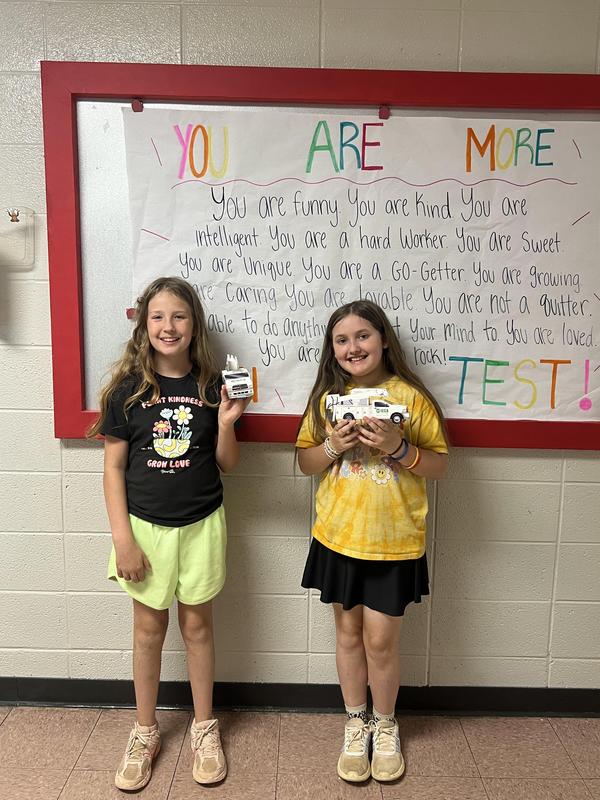 YOU ARE MORE
You are funny. You are kind. You are
intelligent. You are a hard worker. You are sweet.
You are unique. You are a Go-Getter. You are growing.
are caring. You are lovable. You are not a quitter.
able to do anyth your mind to. You are loved.
You are rock!
TEST!
PLANT KINDNESS
GROW LOVE